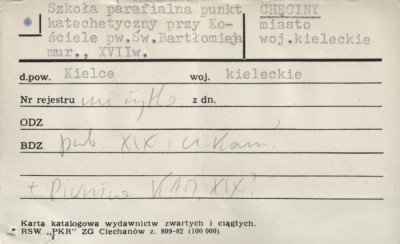 Szkoła parafialna punkt
katechetyczny przy Ko-
ściele pw.Św.Bartłomieja
mur., XVIIw.
CHĘCINY
miasto
woj.kieleckie
d.pow. Kielce woj. kieleckie
Nr rejestru z dn.
ODZ
BDZ XIX
+ Piwnica XIX?
Karta katalogowa wydawnictw zwartych i ciągłych.
RSW „PKR” ZG Ciechanów z. 809-82 (100 000)